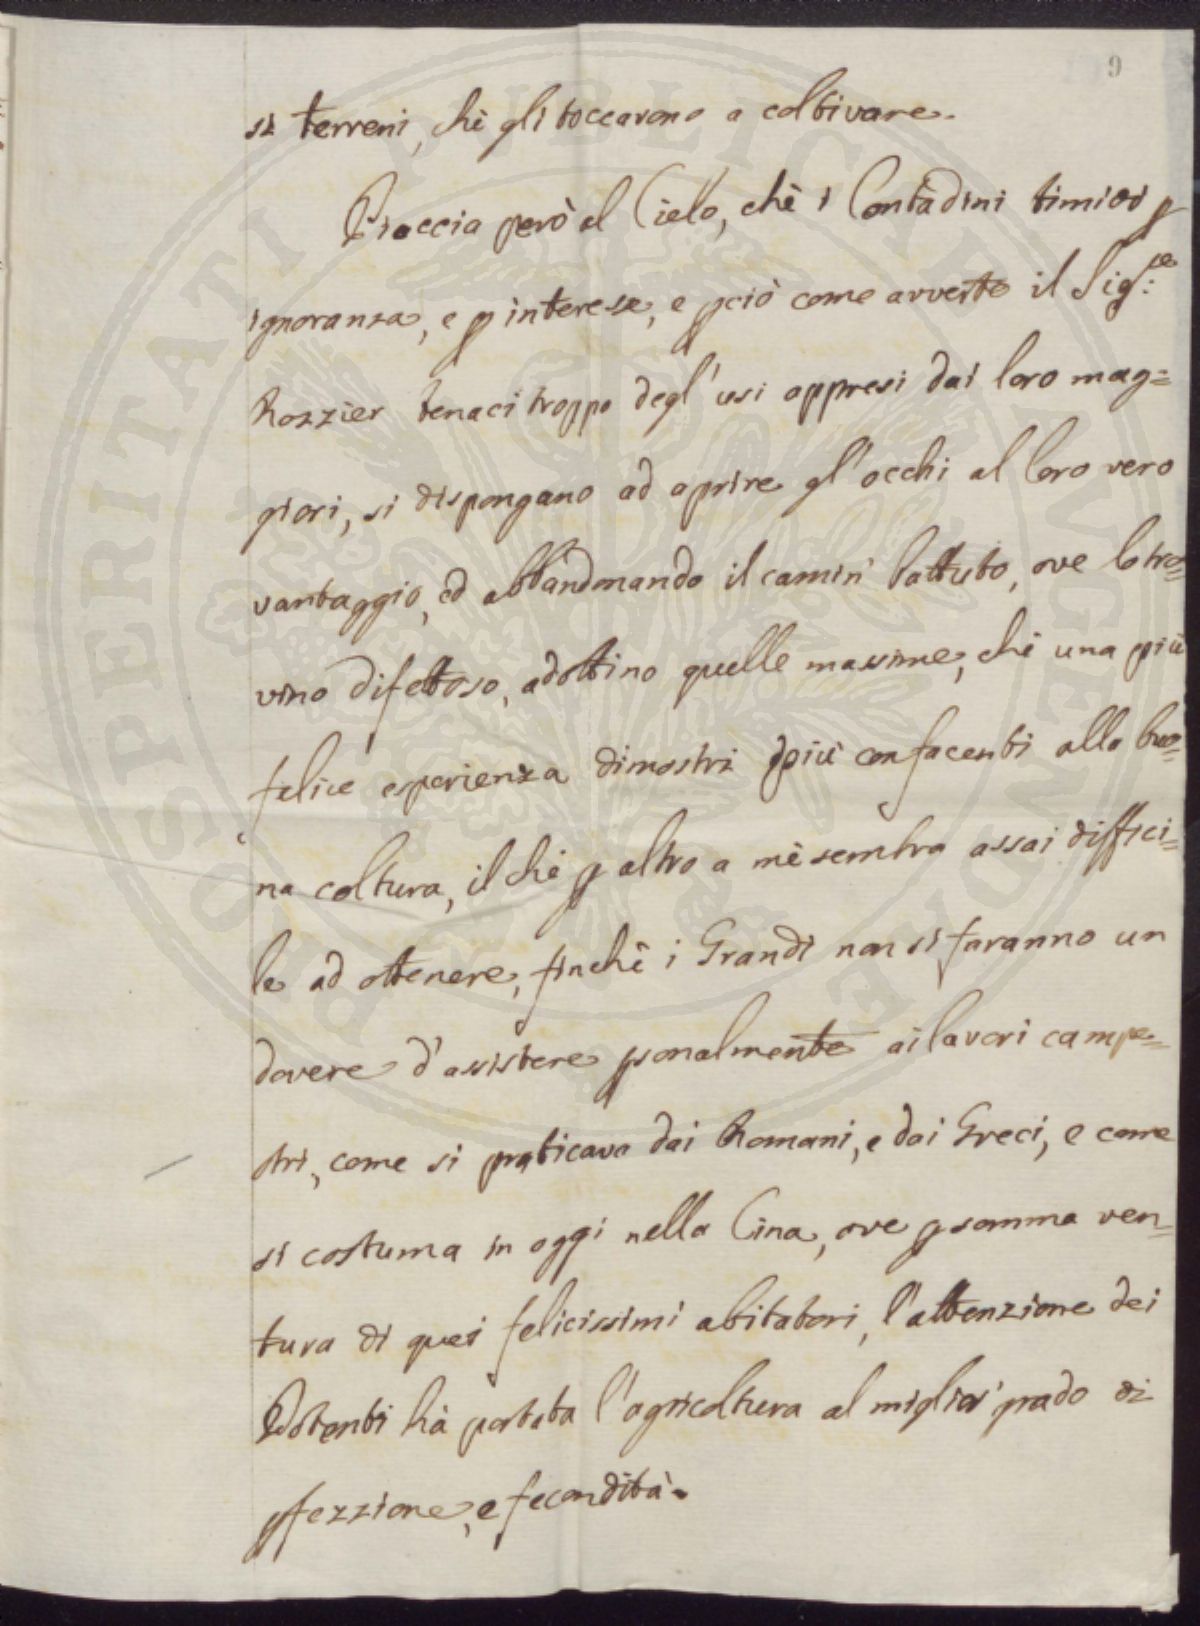 9
si terreni, chè gli toccarono a coltivare.
Piaccia però al Cielo, chè i Contadini timidi p
ignoranza, e p interesse, e pciò come avverte il Sig:re
Rozzier tenaci troppo degl'usi appresi dai loro mag=
giori, si dispongano ad aprire gl'occhi al loro vero
vantaggio, ed abbandonando il camin' battuto, ove lo tro=
vino difettoso, adottino quelle massime, chè una più
felice esperienza dimostri più confacenti alla buo=
na coltura, il chè p altro a mè sembra assai diffici=
le ad ottenere, finchè i Grandi non si faranno un
dovere d'assistere psonalmente ai lavori campe=
stri, come si praticava dai Romani, e dai Greci, e come
si costuma in oggi nella Cina, ove p somma ven=
tura di quei felicissimi abitatori, l'attenzione dei
Potenti hà portata l'agricoltura al miglior grado di
pfezzione, e fecondità.
PROSPERITATI PUBLICAE AUGENDAE